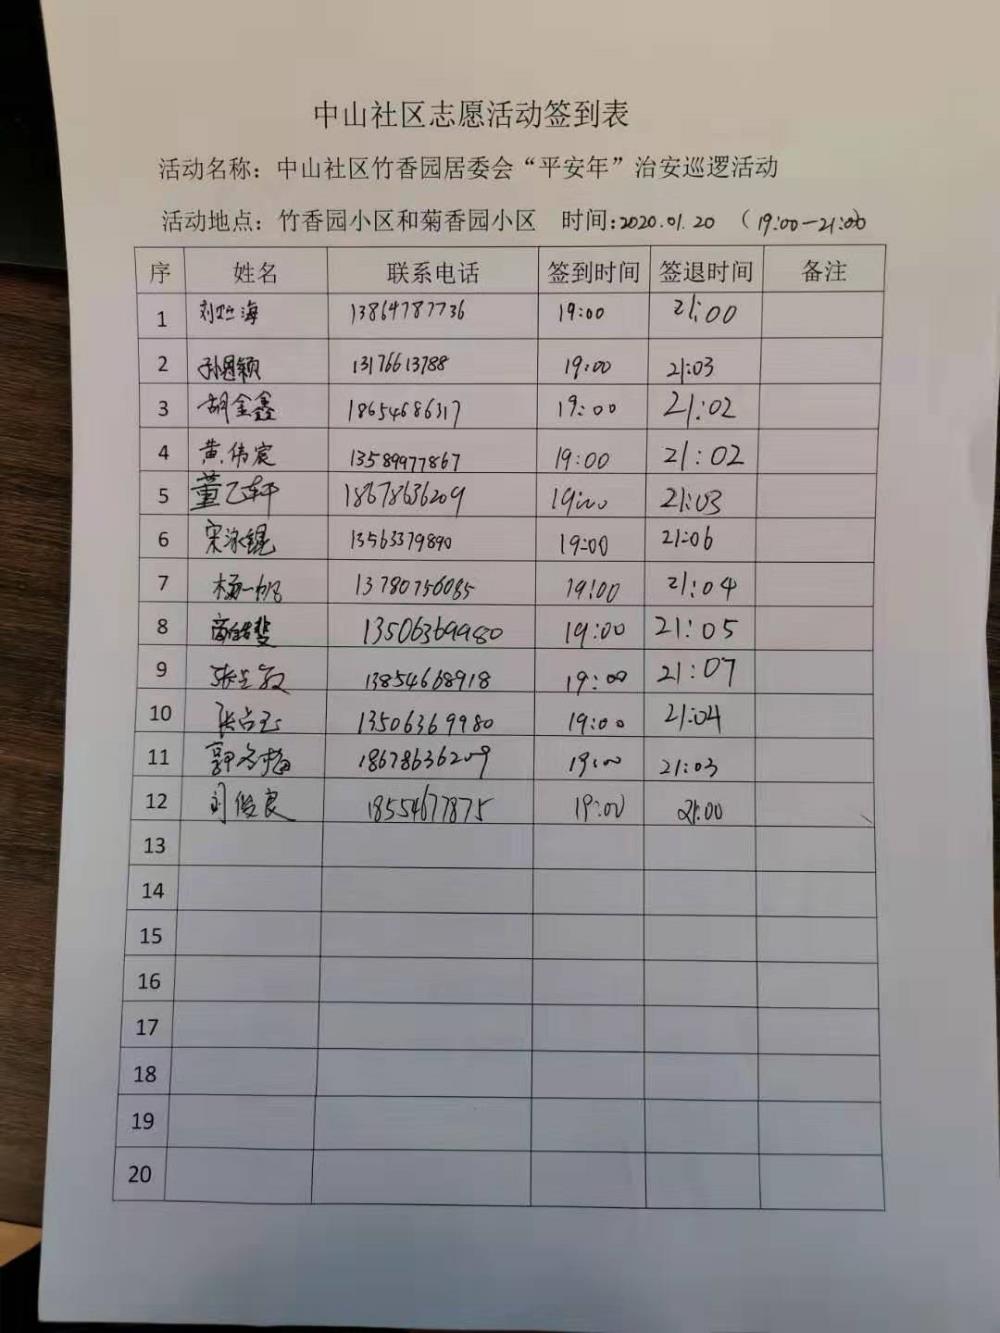 中山社区志愿活动签到表
活动名称：中山社区竹香园居委会“平安年”治安巡逻活动
活动地点：竹香园小区和菊香园小区 时间:2020.01.20 （19:00—21:00
序 姓名 联系电话 签到时间 签退时间 备注
1 刘 海 13864787736 19:00 21:00
2 孙 颖 13176613788 19:00 21:03
3 胡金鑫 18654686317 19:00 21:02
4 黄伟宸 13589977867 19:00 21:02
5 董乙轩 18678636209 19:00 21:03
6 宋泳锟 13563379890 19:00 21:06
7 杨一帆 13780756085 19:00 21:04
8 13506369980 19:00 21:05
9 张 13854668918 19:00 21:07
10 张占玉 13506369980 19:00 21:04
11 郭 梅 18678636209 19:00 21:03
12 刘俊良 18554677875 19:00 21:00
13
14
15
16
17
18
19
20